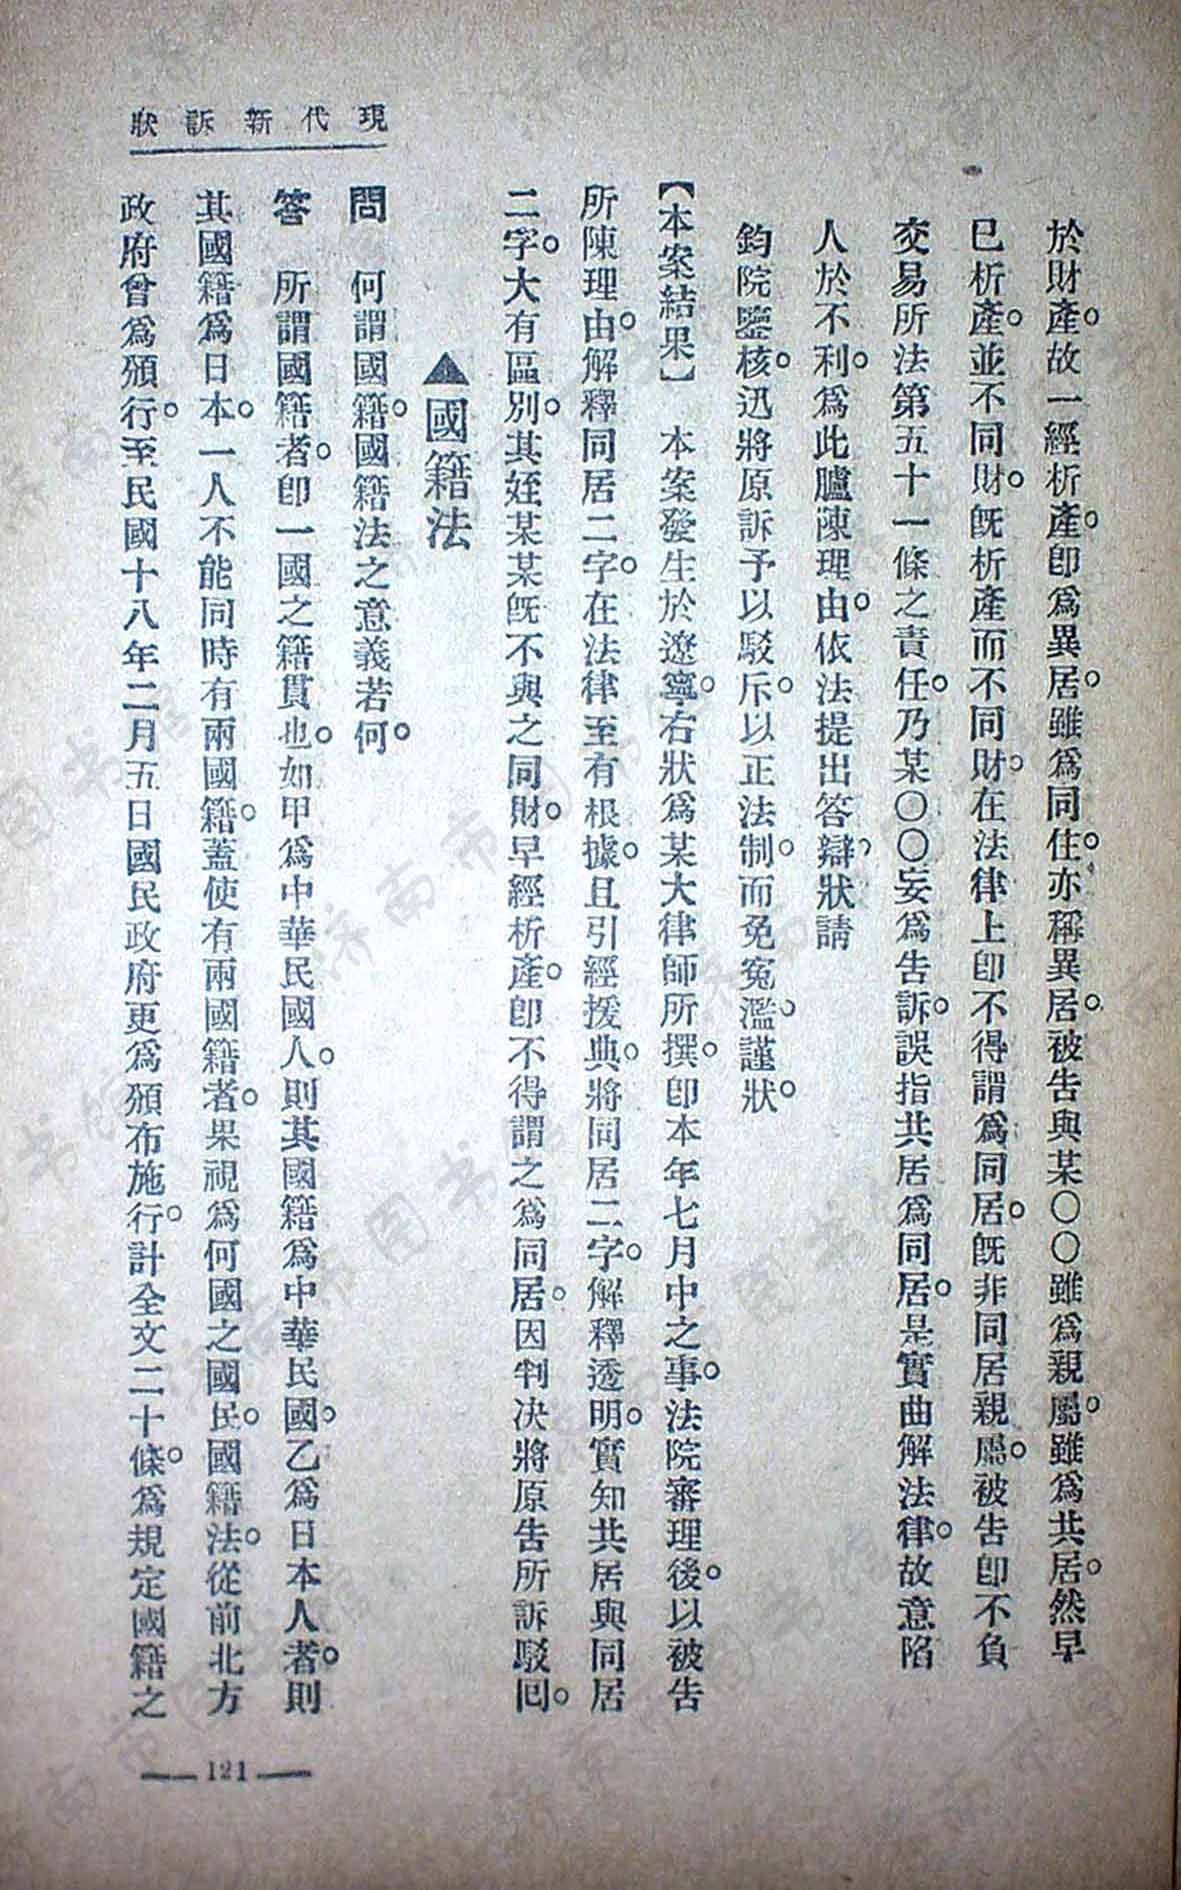 現代新訴狀
於財產。故一經析產。卽爲異居。雖爲同住。亦稱異居。被告與某〇〇雖爲親屬。雖爲共居。然早
已析產。並不同財。旣析產而不同財。在法律上卽不得謂爲同居。旣非同居親屬。被告卽不負
交易所法第五十一條之責任。乃某〇〇妄爲告訴。誤指共居爲同居。是實曲解法律。故意陷
人於不利。爲此臚陳理由。依法提出答辯狀。請
鈞院鑒核。迅將原訴予以駁斥。以正法制。而免冤濫。謹狀。
【本案結果】　本案發生於遼寧。右狀爲某大律師所撰。卽本年七月中之事。法院審理後。以被告
所陳理由。解釋同居二字。在法律至有根據。且引經援典。將同居二字。解釋透明。實知共居與同居
二字。大有區別。其姪某某旣不與之同財。早經析產。卽不得謂之爲同居。因判决將原告所訴駁囘。
▲國籍法
問　何謂國籍。國籍法之意義若何。
答　所謂國籍者。卽一國之籍貫也。如甲爲中華民國人。則其國籍爲中華民國。乙爲日本人者。則
其國籍爲日本。一人不能同時有兩國籍。蓋使有兩國籍者。果視爲何國之國民。國籍法。從前北方
政府曾爲頒行。至民國十八年二月五日國民政府更爲頒布施行。計全文二十條。爲規定國籍之
—121—
济南市图书馆